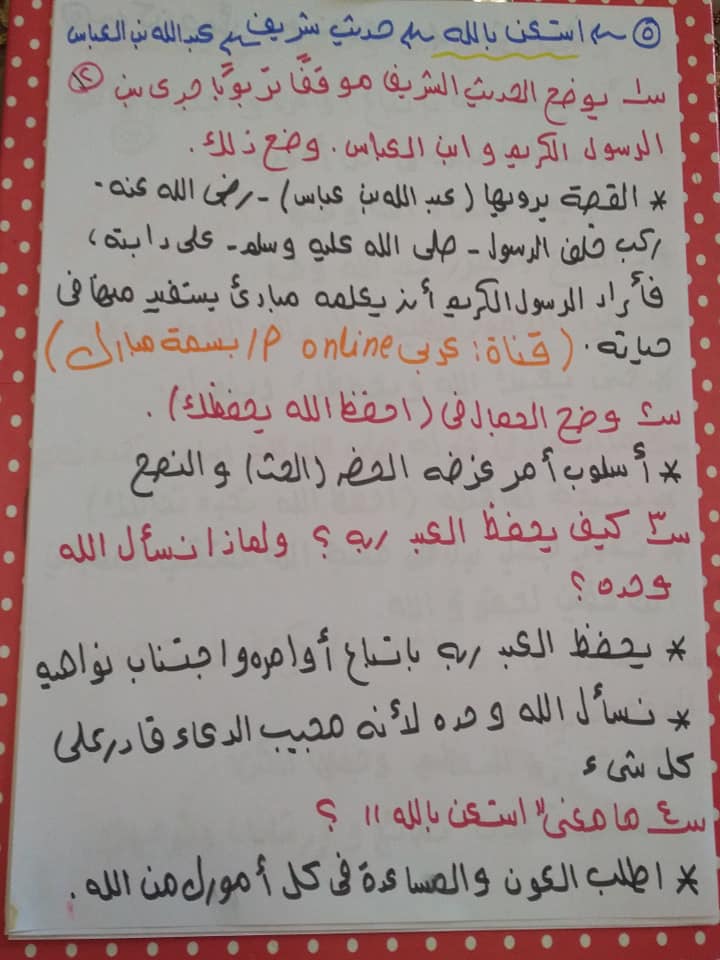 ٥ استعن بالله حديث شريف عبد الله بن العباس
س١ يوضح الحديث الشريف موقفًا تربويًا جرى بين ١٢
الرسول الكريم و ابن العباس. وضح ذلك.
* القصة يرويها (عبد الله بن عباس) - رضى الله عنه.
ركب خلف الرسول - صلى الله عليه وسلم - على دابته،
فأراد الرسول الكريم أن يعلمه مبادئ يستفيد منها فى
حياته. (قناة: عربى online م/ بسمة مبارك)
س٢ وضح الجمال فى (احفظ الله يحفظك).
* أسلوب أمر غرضه الحض (الحث) و النصح
س٣ كيف يحفظ العبد ربه ؟ ولماذا نسأل الله
وحده ؟
* يحفظ العبد ربه باتباع أوامره واجتناب نواهيه
* نسأل الله وحده لأنه مجيب الدعاء قادر على
كل شىء
س٤ ما معنى " استعن بالله " ؟
* اطلب العون والمساعدة فى كل أمورك من الله.